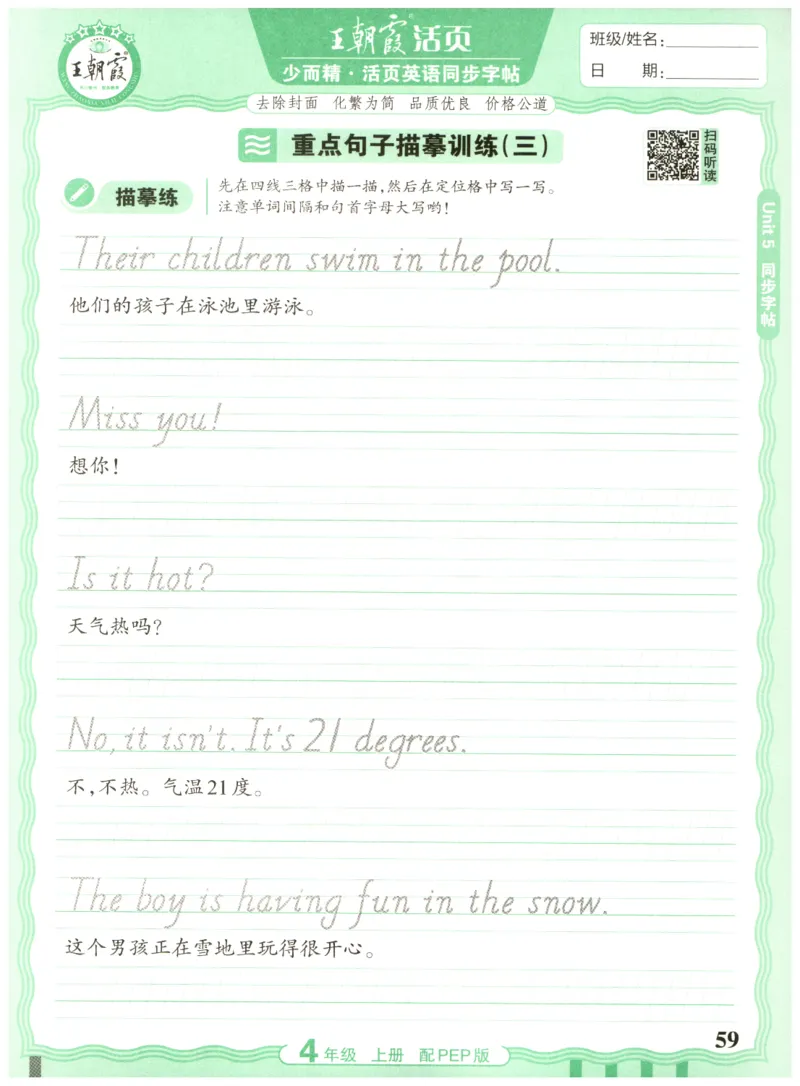 王朝霞
王朝霞活页
少而精·活页英语同步字帖
班级/姓名:
日 期:
去除封面 化繁为简 品质优良 价格公道
重点句子描摹训练(三)
扫码听读
描摹练
先在四线三格中描一描,然后在定位格中写一写。
注意单词间隔和句首字母大写哟!
Unit 5 同步字帖
Their children swim in the pool.
他们的孩子在泳池里游泳。
Miss you!
想你!
Is it hot?
天气热吗?
No, it isn't. It's 21 degrees.
不,不热。气温21度。
The boy is having fun in the snow.
这个男孩正在雪地里玩得很开心。
59
4年级 上册 配PEP版